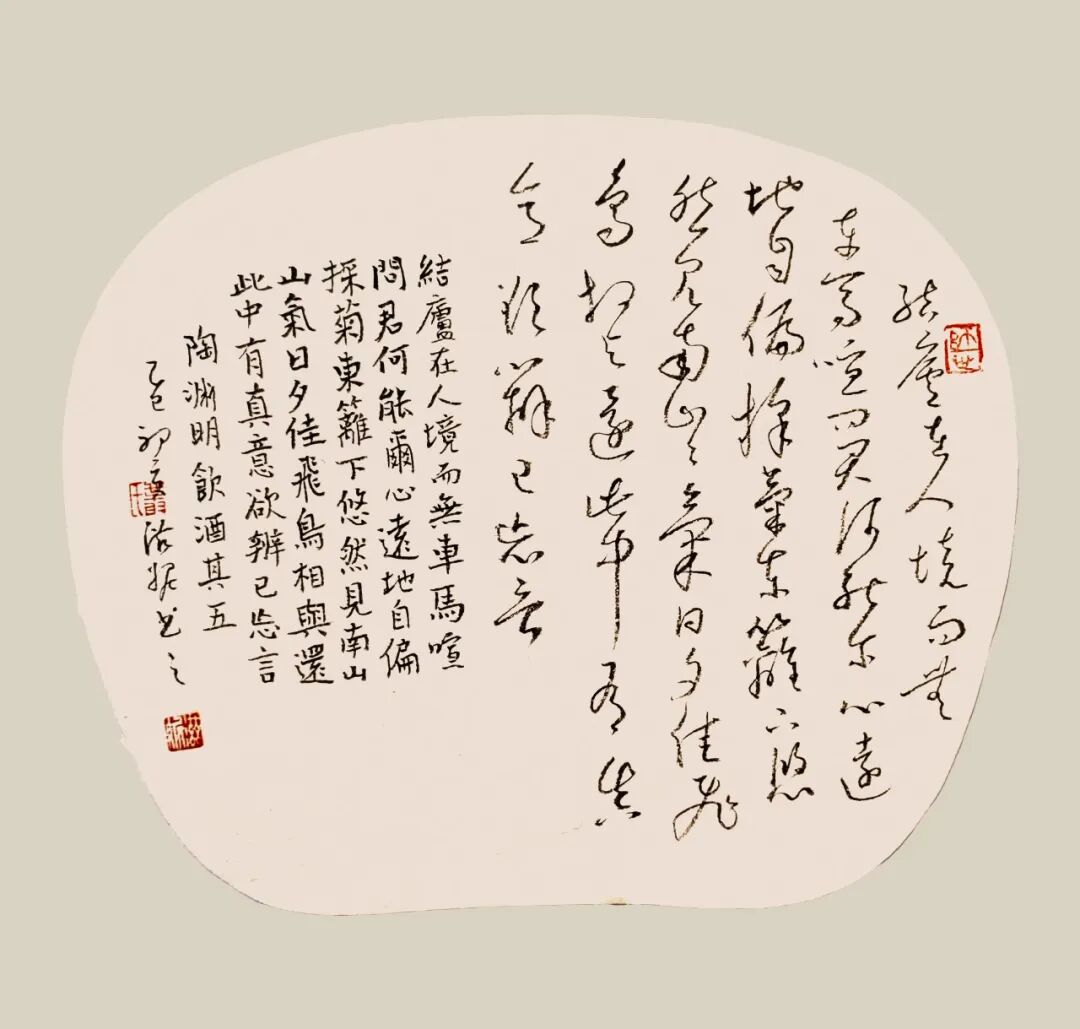 結廬在人境而無
車馬喧問君何能尔心遠
地自偏採菊东籬下悠
然見南山々氣日夕佳飛
鳥相与還此中有真
意欲辨已忘言
結廬在人境而無車馬喧
問君何能爾心遠地自偏
採菊東籬下悠然見南山
山氣日夕佳飛鳥相與還
此中有真意欲辨已忘言
陶渊明飲酒其五
乙巳初夏书之